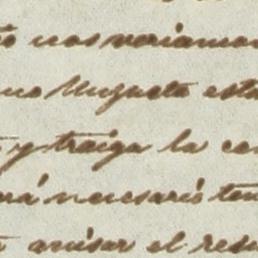 nos variamen
no Muguete esta
y traiga la co
rá necesario ten
avisar el resu